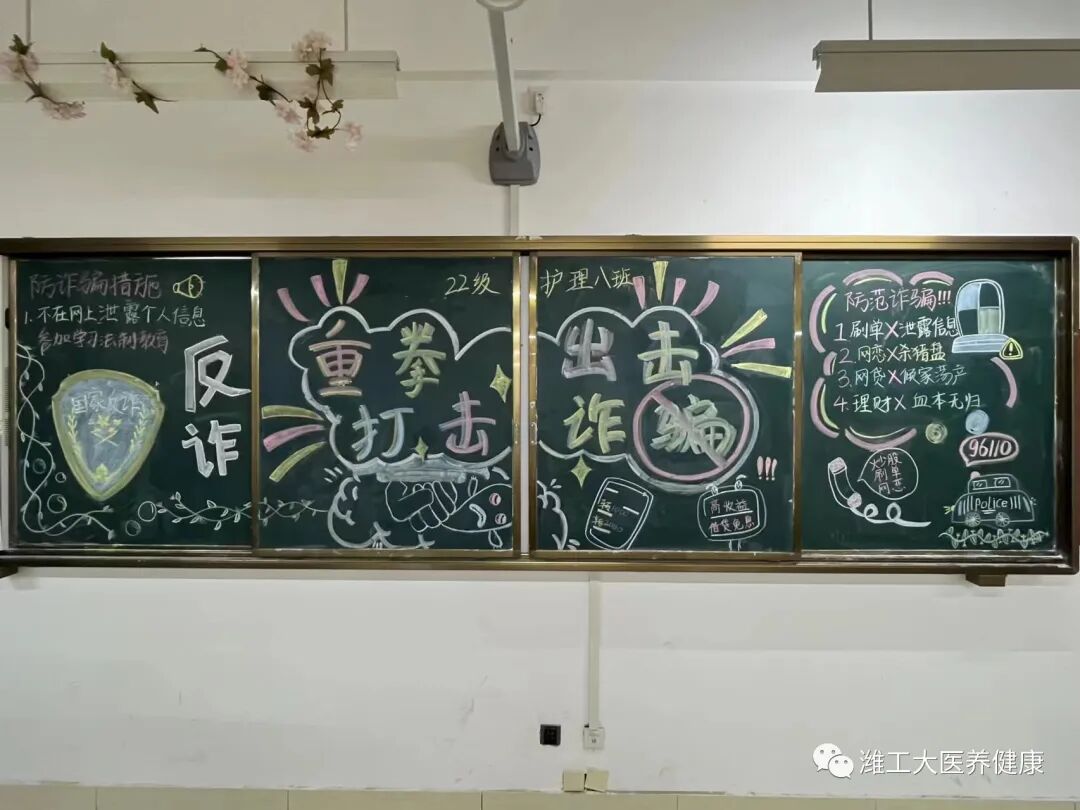 防诈骗措施
1.不在网上泄露个人信息
参加学习法制教育
国家反诈
反诈
22级
重拳
打击
护理八班
出击
诈骗
!!!
高收益
借贷免息
防范诈骗!!!
1.刷单X泄露信息
2.网恋X杀猪盘
3.网贷X倾家荡产
4.理财X血本无归
炒股
刷单
网恋
96110
Police
潍工大医养健康